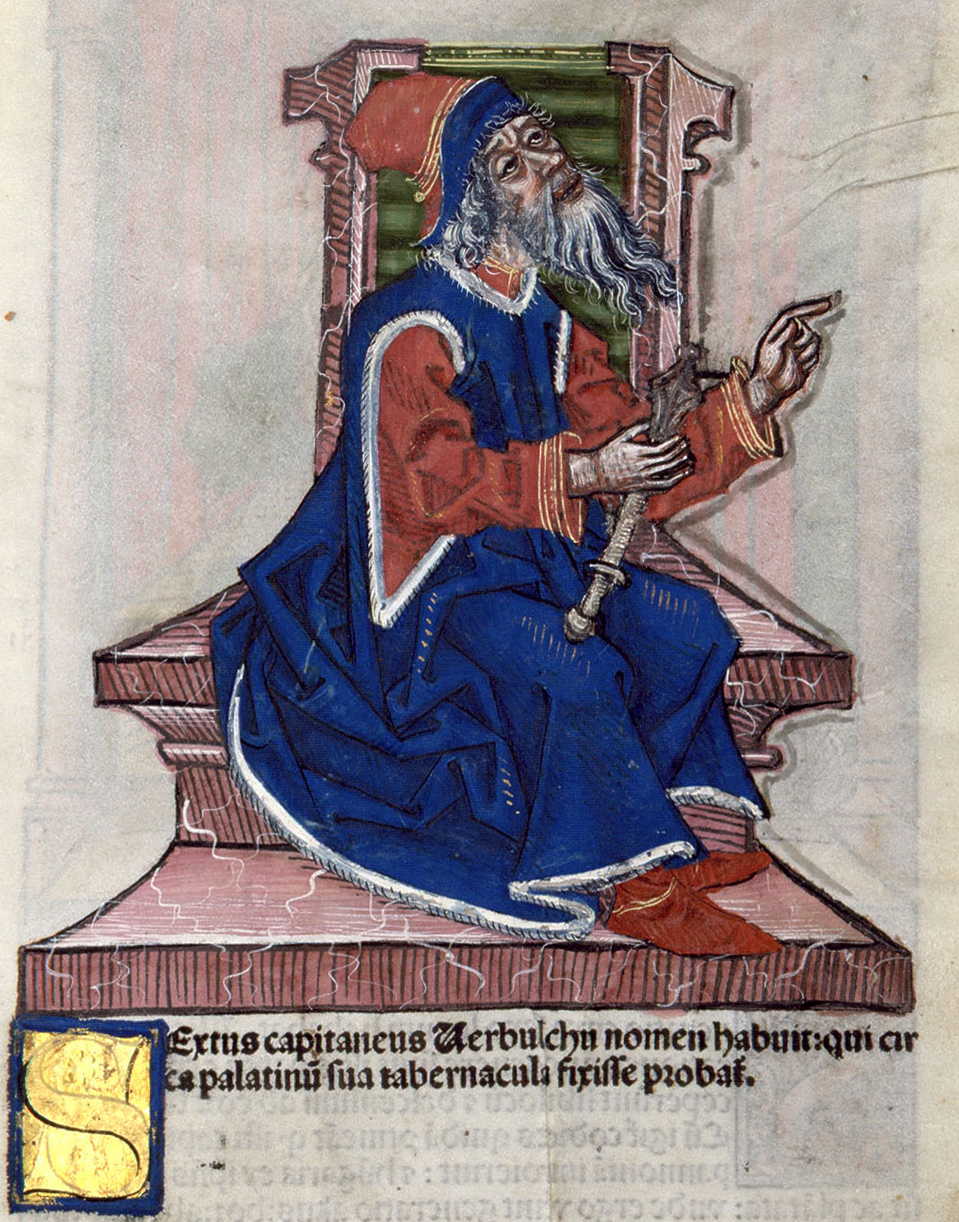 SExtus capitaneus Uerbulchu nomen habuit:qui cir
ca palatinū sua tabernacula fixisse probať.